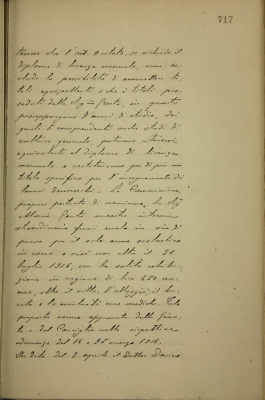 717
tenuto che l'art. 8 citato, se richiede il
diploma di licenza normale, non es-
clude la possibilità di ammettere ti-
toli equipollenti e che i titoli pos-
seduti dalla Sig.na Conti, in quanto
presuppongono d'anni di studio, dei
quali 5 comprendenti anche studi di
cultura generale, potevano tenersi
equivalenti al diploma di licenza
normale e costituiscono per di più un
titolo specifico per l'insegnamento dei
lavori donneschi. La Commissione
propone pertanto di nominare la Sig.
Maria Conti maestra interna
straordinaria fuori ruolo in via di
prova per il solo anno scolastico
in corso e cioè non oltre il 31
luglio 1916, con la solita retribu-
zione in ragione di lire 650 an-
nue, oltre il vitto, l'alloggio, il bu-
cato e la assistenza medica. Tale
proposta venne approvata dalla Giun-
ta e dal Consiglio nelle rispettive
adunanze del 16 e 25 marzo 1916.
In data del 3 aprile il Dottor